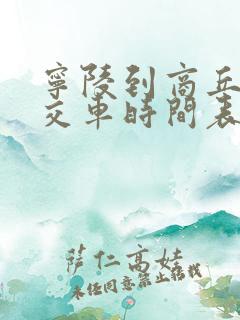 寧陵到商丘
交車時間表
薩仁高娃
未經同意禁止轉載